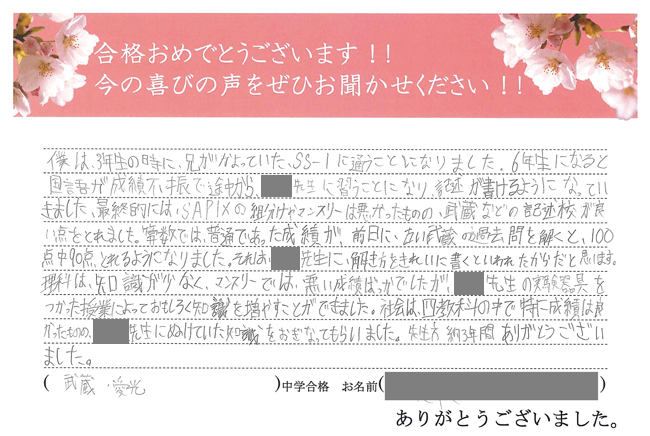 合格おめでとうございます！！
今の喜びの声をぜひお聞かせください！！
僕は、3年生の時に、兄がかよっていた、SS-1に通うことになりました。6年生になると
国語が成績不振で途中から、先生に習うことになり、記述が書けるようになってい
きました、最終的には、SAPIXの組分けやマンスリーは悪かったものの、武蔵などの記述校が良
い点をとれました。算数では、普通であった成績が、前日に、古い武蔵の過去問を解くと、100
点中90点とれるようになりました。それは、先生に、解き方をきれいに書くといわれたからだと思います。
理科は、知識が少なく、マンスリーでは、悪い成績ばっかでしたが、先生の実験器具を
つかった授業によっておもしろく知識を増やすことができました。社会は、四教科の中で特に成績は良
かったものの、先生にぬけていた知識をおぎなってもらいました。先生方約3年間ありがとうござい
ました。
(武蔵・愛光)中学合格 お名前( )
ありがとうございました。